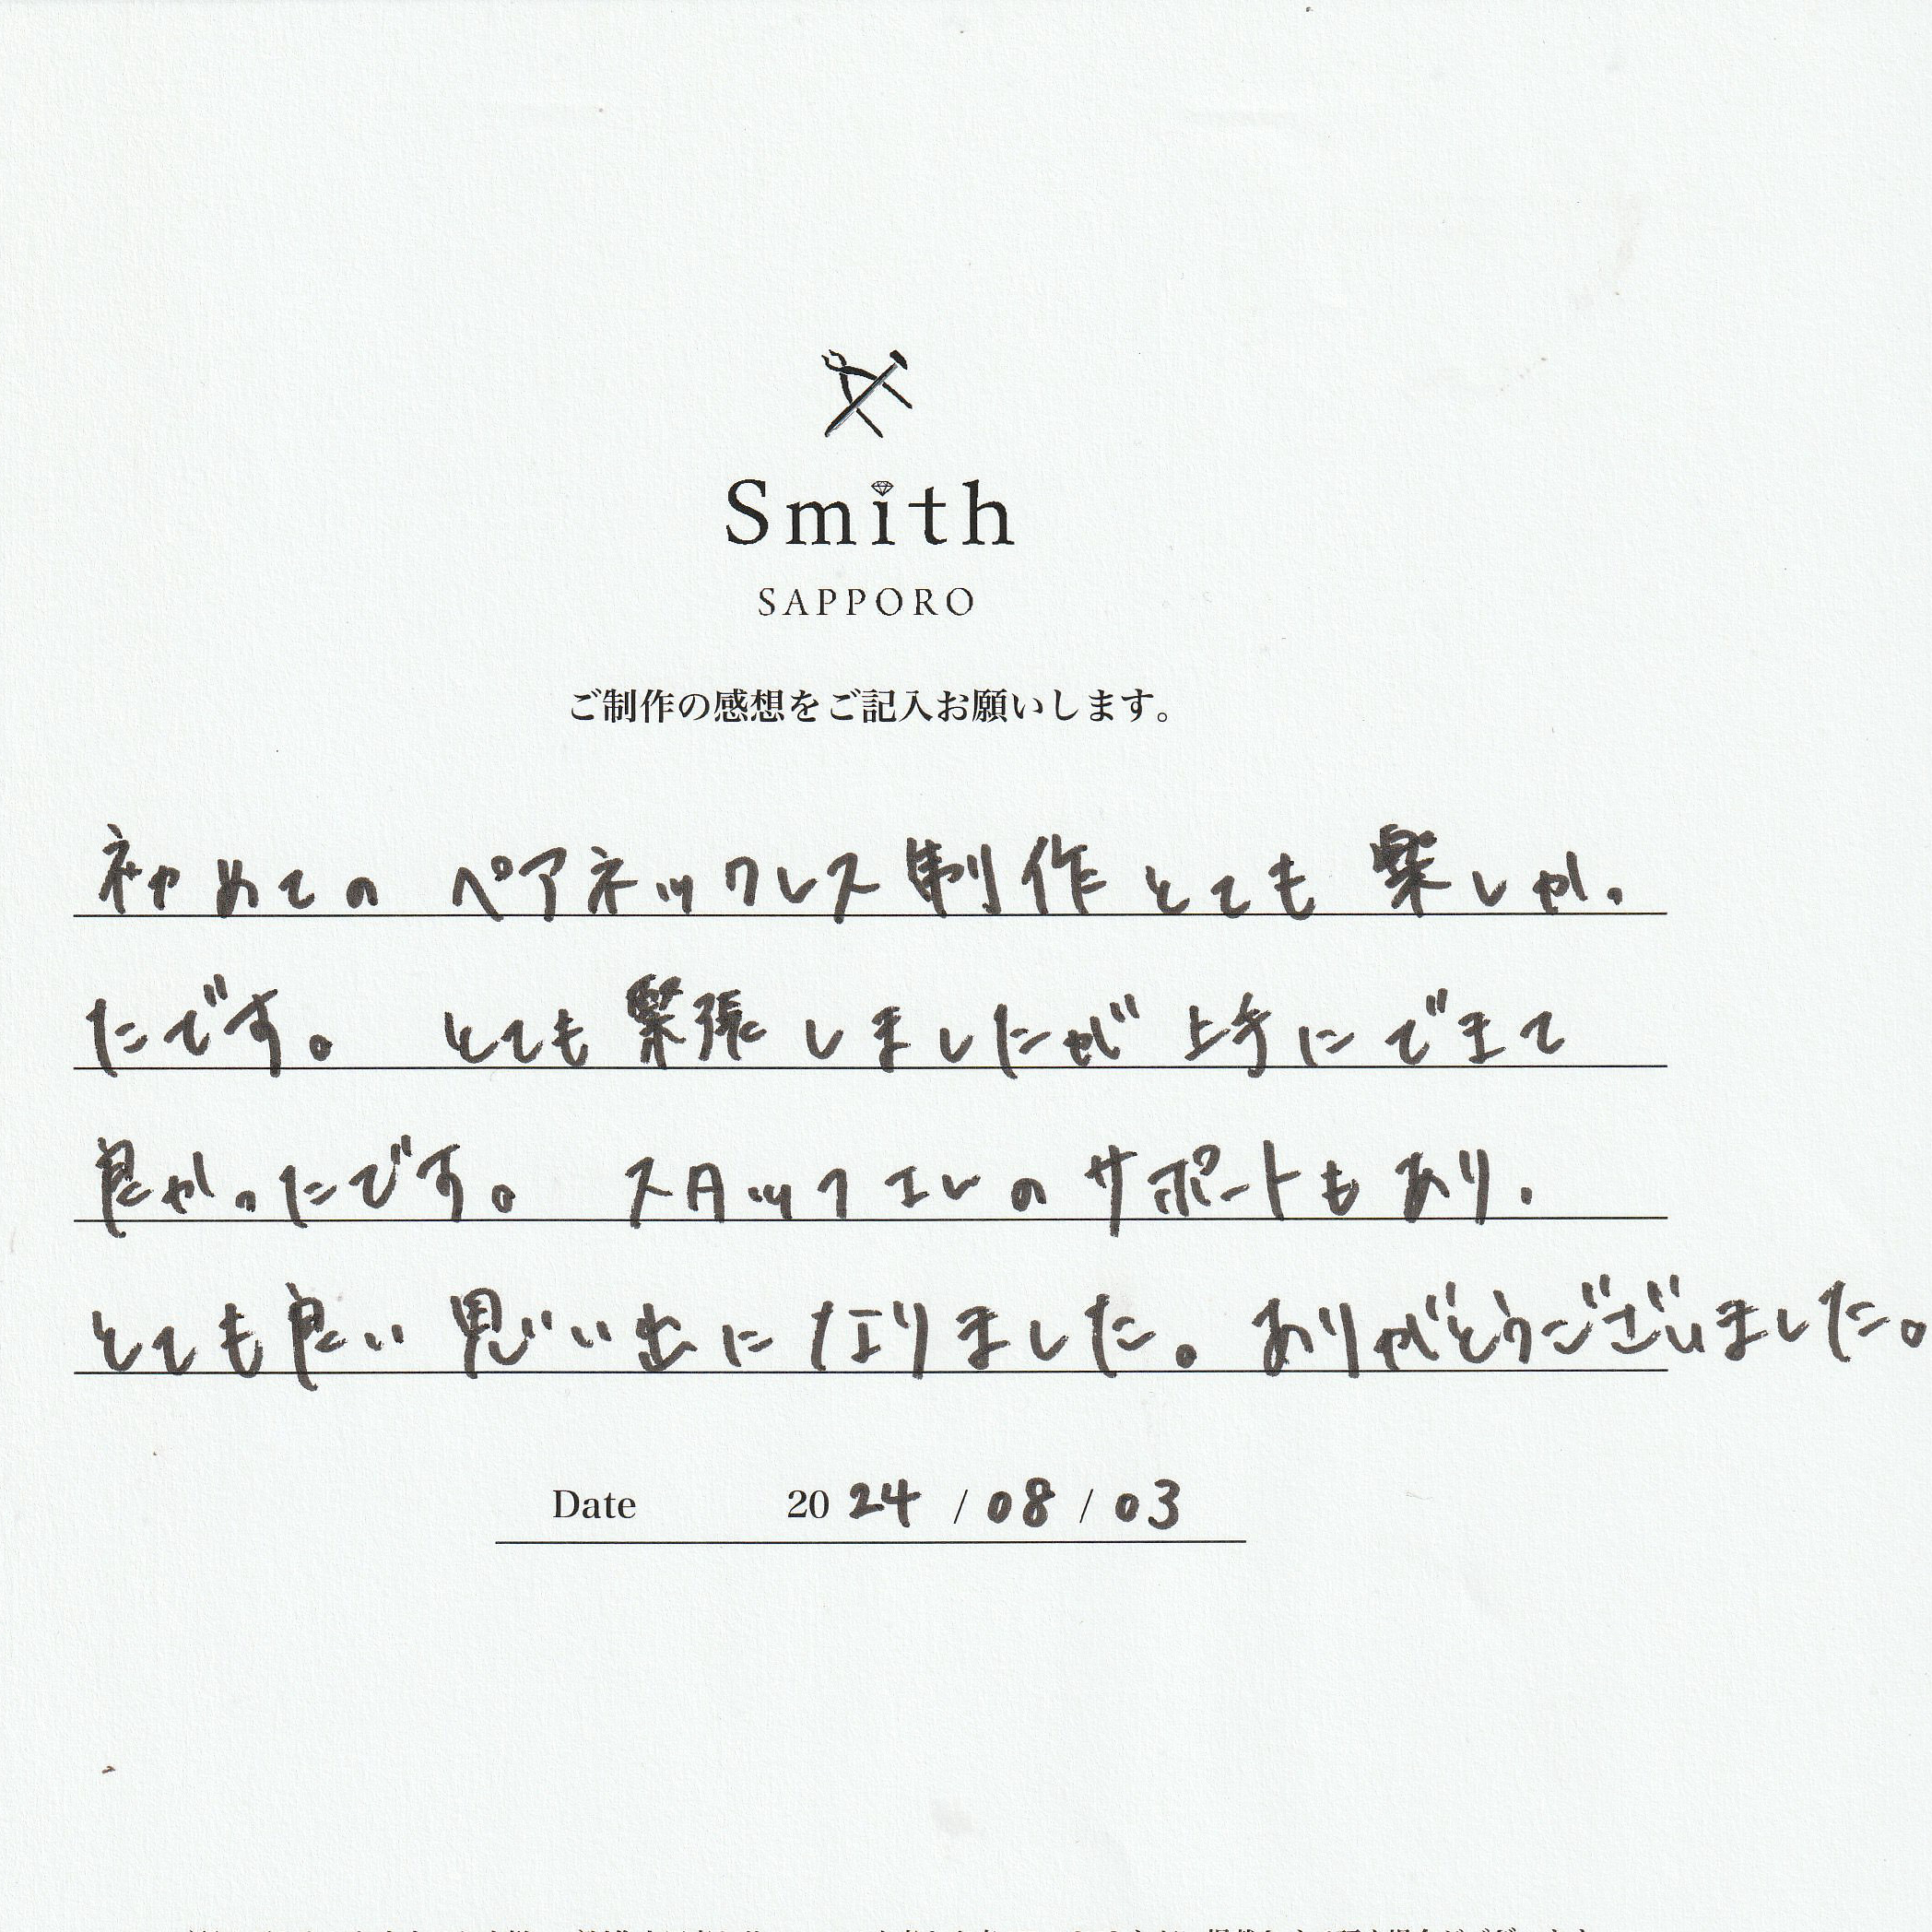 Smith
SAPPORO
ご制作の感想をご記入お願いします。
初めての ペアネックレス制作とても楽しかっ
たです。 とても緊張しましたが 上手にできて
良かったです。 スタッフさんのサポートもあり、
とても良い思い出になりました。ありがとうございました。
Date 2024 / 08 / 03